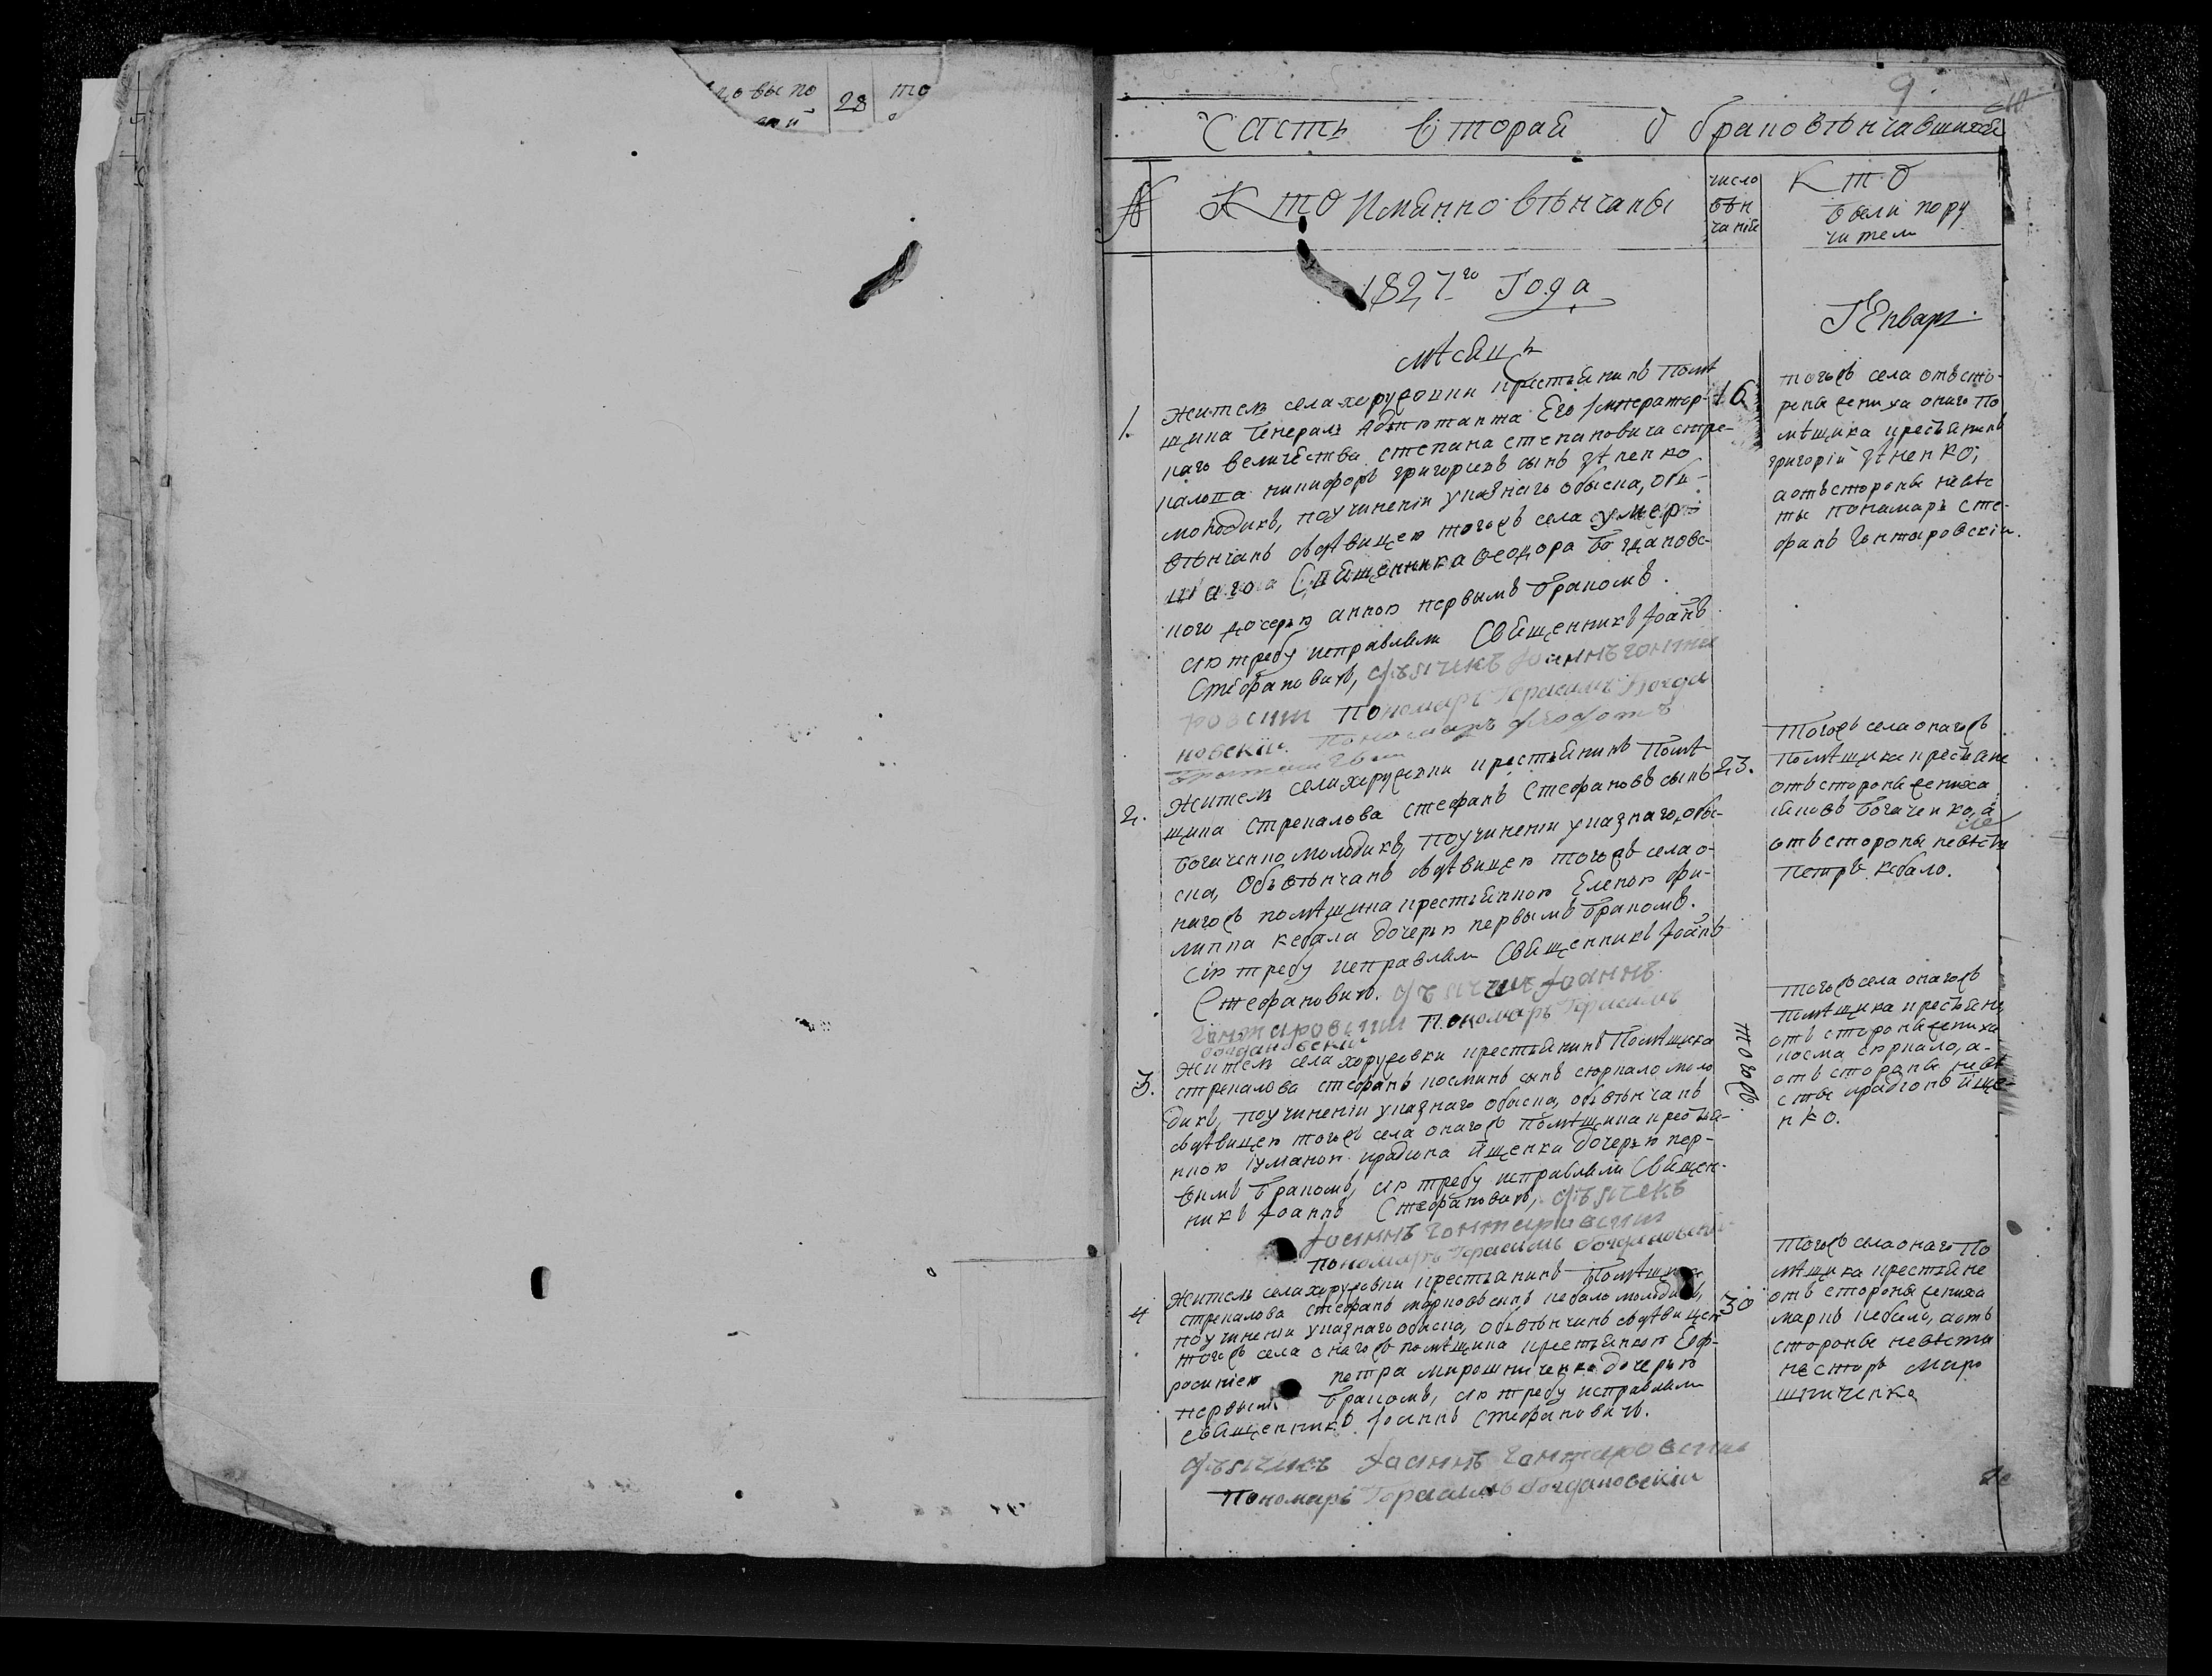 то
28
9
Часть вторая о браковѣнчавшихся
№
Кто Имянно вѣнчаны
число вѣн чаній
Кто были пору чители
1827го Года
мѣсяцъ
ГЕнварь
1.
житель села хоружовки крестьянинъ помѣ
щика Генералъ Адьютанта Его Император-
наго величества степана степановича стре-
калова никифоръ григориевъ сынъ зѣненко
молодикъ, поучиненіи указнаго обыска, обь-
вѣнчанъ
священника Феодора Богдановс-
кого дочерью анною первымъ бракомъ.
сію требу исправляли Священникъ Іоаннъ
Стефановичъ, дьячекъ Іоаннъ гонта
ровскій Пономарь Герасимъ Богда
новскій
16
тогожъ села отъ сто-
роны жениха онаго по
мѣщика крестьянинъ
григорій зѣненко;
а отъ стороны невѣс
ты пономарь сте-
фанъ Гонтаровскій.
2.
Житель села хоружовки крестьянинъ помѣ-
щика стрекалова стефанъ Стефановъ сынъ
богаченко молодикъ, поучиненіи указнаго обы-
ска, Обьвѣнчанъ здѣвицею тогожъ села о-
нагожъ помѣщика крестьянкою Еленою фи-
липпа кебала дочерью первымъ бракомъ.
Сію требу исправляли Священникъ Іоаннъ
Стефановичъ. дьячекъ Іоаннъ
Гонтаровскій Пономарь Герасимъ
богдановскій
23.
Тогожъ села онагожъ
помѣщика крестьяне
отъ стороны жениха
яковъ богаченко, а
отъ стороны невѣсты
Петръ кебало.
3.
Житель села хоружовки крестьянинъ Помѣщика
стрекалова стефанъ косминъ сынъ скрипало моло
дикъ, поучиненіи указнаго обыска, обьвѣнчанъ
здѣвицею тогожъ села онагожъ помѣщика крестья-
нкою іулианою иродиона йщенка дочерью пер-
вымъ бракомъ, сію требу исправляли Священ-
никъ Іоаннъ Стефановичъ, дьячекъ
Іоаннъ Гонтаровскій
пономарь Герасимъ богдановскій
тогожъ.
тогожъ села онагожъ
помѣщика крестьяне
отъ стороны жениха
косма скрипало, а-
отъ стороны невѣ
сты иродионъ йще-
нко.
4
Житель села хоружовки крестьянинъ Помѣщика
стрекалова стефанъ марковъ сынъ кебало молодикъ,
поучиненіи указнаго обыска, обьвѣнчанъ здѣвицею
тогожъ села онагожъ помѣщика крестьянкою Евф-
росиніею петра мирошниченка дочерью
первымъ бракомъ, сію требу исправляли
священникъ Іоаннъ Стефановичъ.
дьячекъ Іоаннъ Гонтаровскій
Пономарь Герасимъ богдановскій
30
Тогожъ села онаго по
мѣщика крестьяне
отъ стороны жениха
маркъ кебало, а отъ
стороны невѣсты
несторъ миро
шниченко